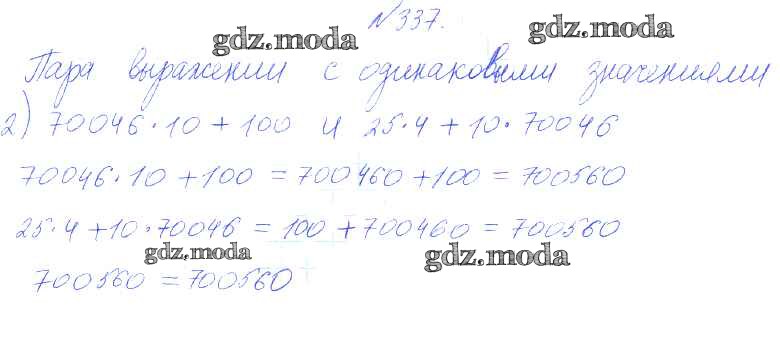 №337.
gdz.moda gdz.moda
Пара выражении с одинаковыми значениями
2) 70046·10+100 и 25·4+10·70046
70046·10+100=700460+100=700560
25·4+10·70046=100+700460=700560
gdz.moda gdz.moda
700560=700560